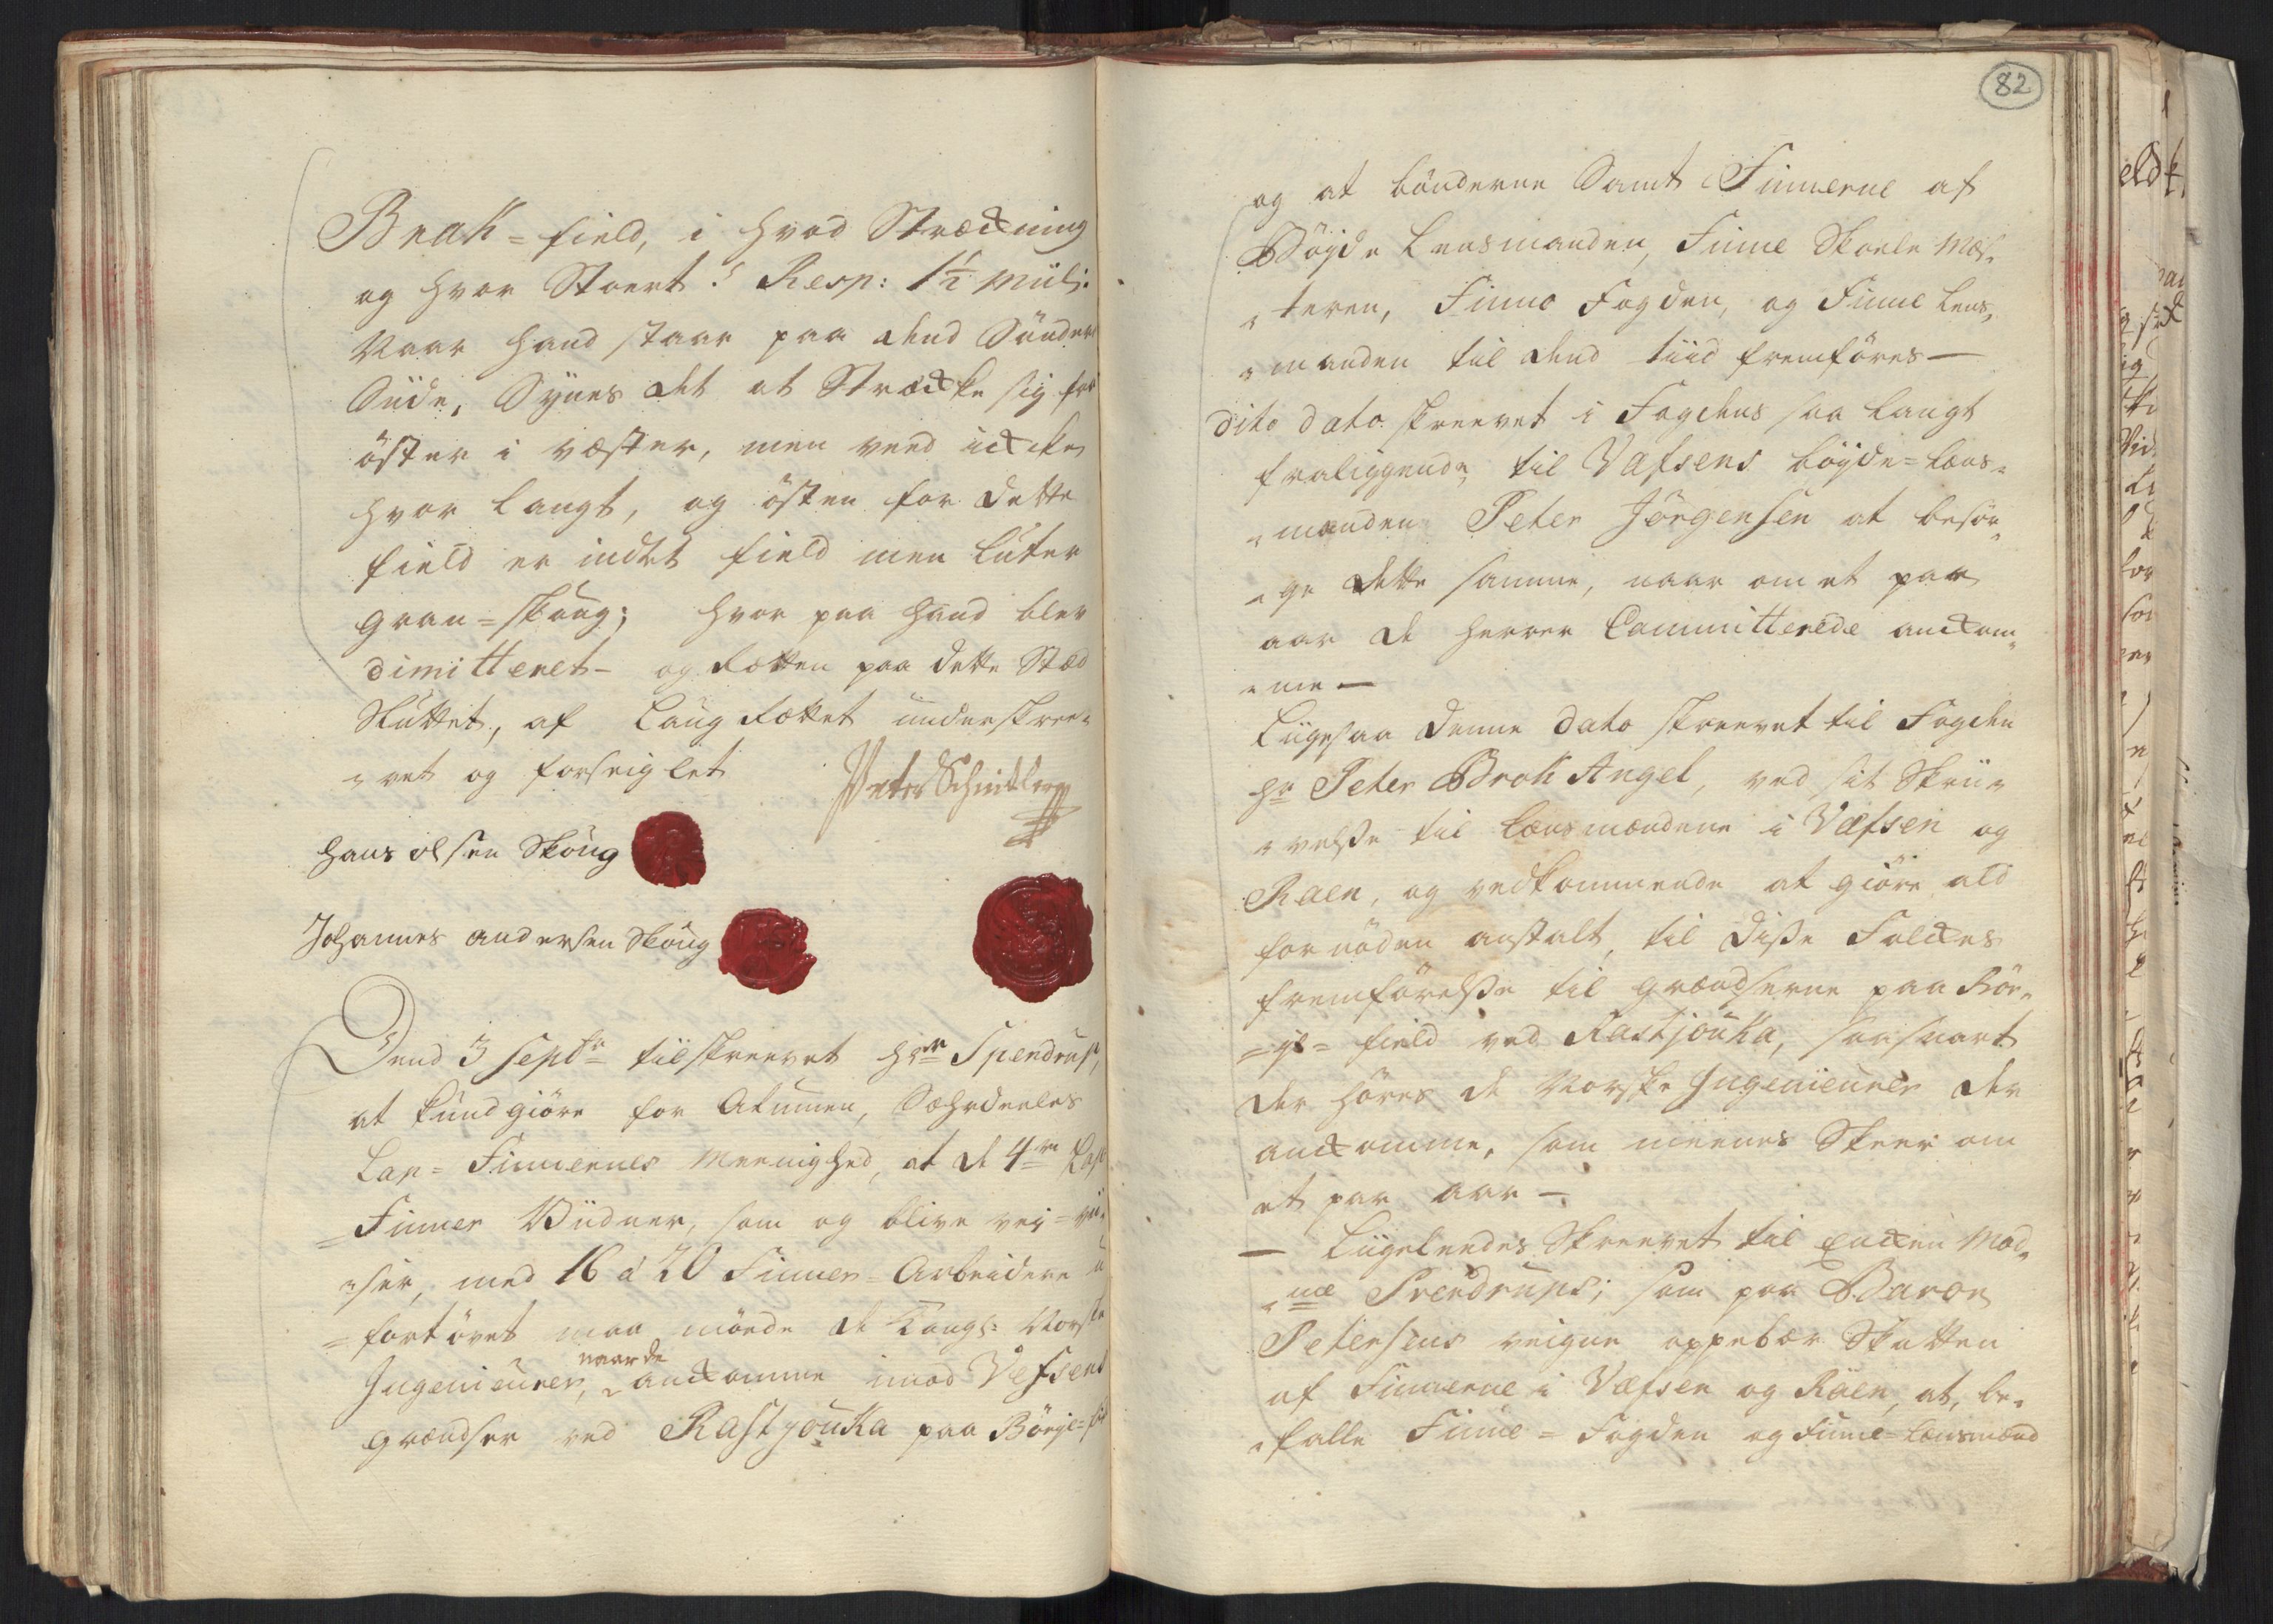 Brak=field, i hvad Strækning
og hvor Stoert? Resp: 1 1/2 Miil:
Naar hand staar paa dend Søndre
Siide, Synes det at Strække sig fra
øster i væster, men veed icke
hvor langt, og østen for dette
field er indtet field men luter
gran=skoug; hvor paa hand blev
dimitteret - og Rætten paa dette Stæd
Sluttet, af Laug Rættet underskree=
=vet og forseiglet
Peter Schnitler
Hans olsen Skoug
Johannes andersen Skoug
Dend 3 Septbr tilskreevet Hrr Spendrup,
at kundgiøre for Atumen,
Lap=Finnernes Meenighed, at de 4re Lap
=Finner Viidner, som og blive vei=vii
=ser, med 16 à 20 Finner=Arbeidere u
=fortøvet maa møede de Kongl: Norske
Ingenieurer, naar de ankomme imod Vefsens
grændser ved Rastjouka paa Børgje=field
82
og at bønderne Samt Finnerne af
Bøyde Lensmanden, Finne Skoele Mæs=
=teren, Finne Fogden, og Finne Lens=
=manden til dend tiid fremføres -
dito dato skreevet i Fogdens saa langt
fraliggende, til Vefsens bøyde=Læns=
=manden Peter Jørgensen at besør=
=ge dette samme, naar om et par
aar de Herrer Committerede ankom=
=me -
Liigesaa denne dato skreevet til Fogden
Hr Peter Brok Angel, ved sit Skrii=
=velse til Lænsmændene i Vefsen og
Raen, og vedkommende at giøre ald
fornøden anstalt, til disse Folkes
fremførelse til grændserne paa Bør=
=gie=field ved Rastjouka, saasnart
der høres de Norske Ingenieurer der
ankomme, som meenes Skeer om
et par aar -
- Liigeleedes Skreevet til Enken Mad=
=me Prendrups; som paa Baron
Petersens veigne oppebær Skatten
af Finnerne i Vefsen og Raen, at, be=
=falle Finne=Fogden og Finne=Lænsmænd